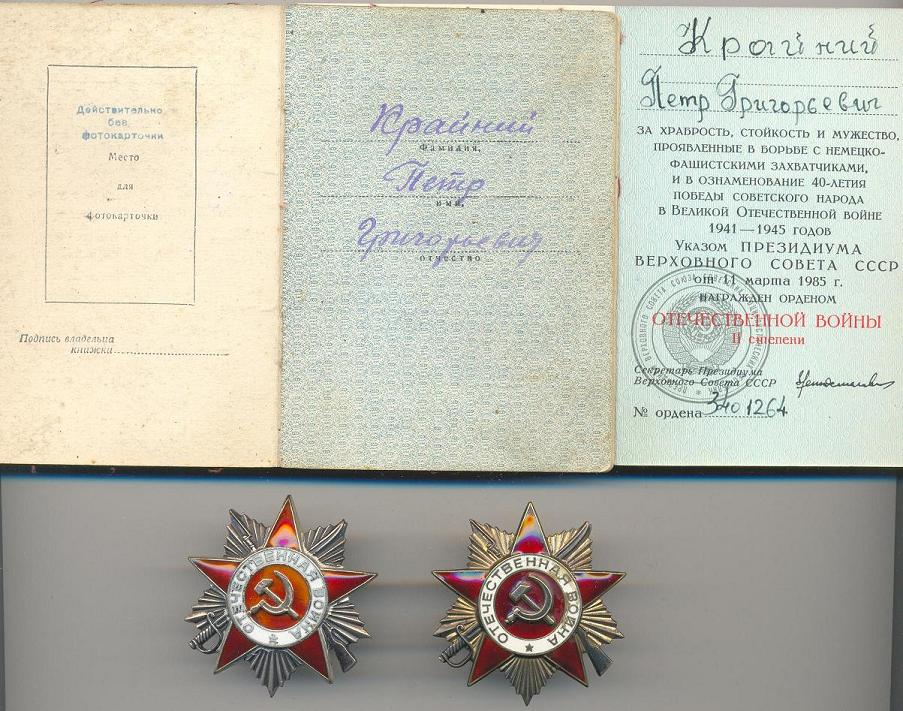 Действительно
без
фотокарточки
Место
для
фотокарточки
Подпись владельца
книжки
Крайний
Фамилия,
Петр
имя,
Григорьевич
отчество
Крайний
Петр Григорьевич
ЗА ХРАБРОСТЬ, СТОЙКОСТЬ И МУЖЕСТВО,
ПРОЯВЛЕННЫЕ В БОРЬБЕ С НЕМЕЦКО-
ФАШИСТСКИМИ ЗАХВАТЧИКАМИ,
И В ОЗНАМЕНОВАНИЕ 40-ЛЕТИЯ
ПОБЕДЫ СОВЕТСКОГО НАРОДА
В ВЕЛИКОЙ ОТЕЧЕСТВЕННОЙ ВОЙНЕ
1941—1945 ГОДОВ
УКАЗОМ ПРЕЗИДИУМА
ВЕРХОВНОГО СОВЕТА СССР
от 11 марта 1985 г.
НАГРАЖДЕН ОРДЕНОМ
ОТЕЧЕСТВЕННОЙ ВОЙНЫ
II степени
Секретарь Президиума
Верховного Совета СССР
№ ордена 3401264
ОТЕЧЕСТВЕННАЯ ВОЙНА
ОТЕЧЕСТВЕННАЯ ВОЙНА